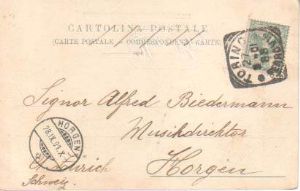 CARTOLINA POSTALE
(CARTE POSTALE - CORRESPONDENZ-KARTE)
TORINO
Signor Alfred Biedermann
Musikdirektor
HORGEN
Zürich
Horgen
Schweiz